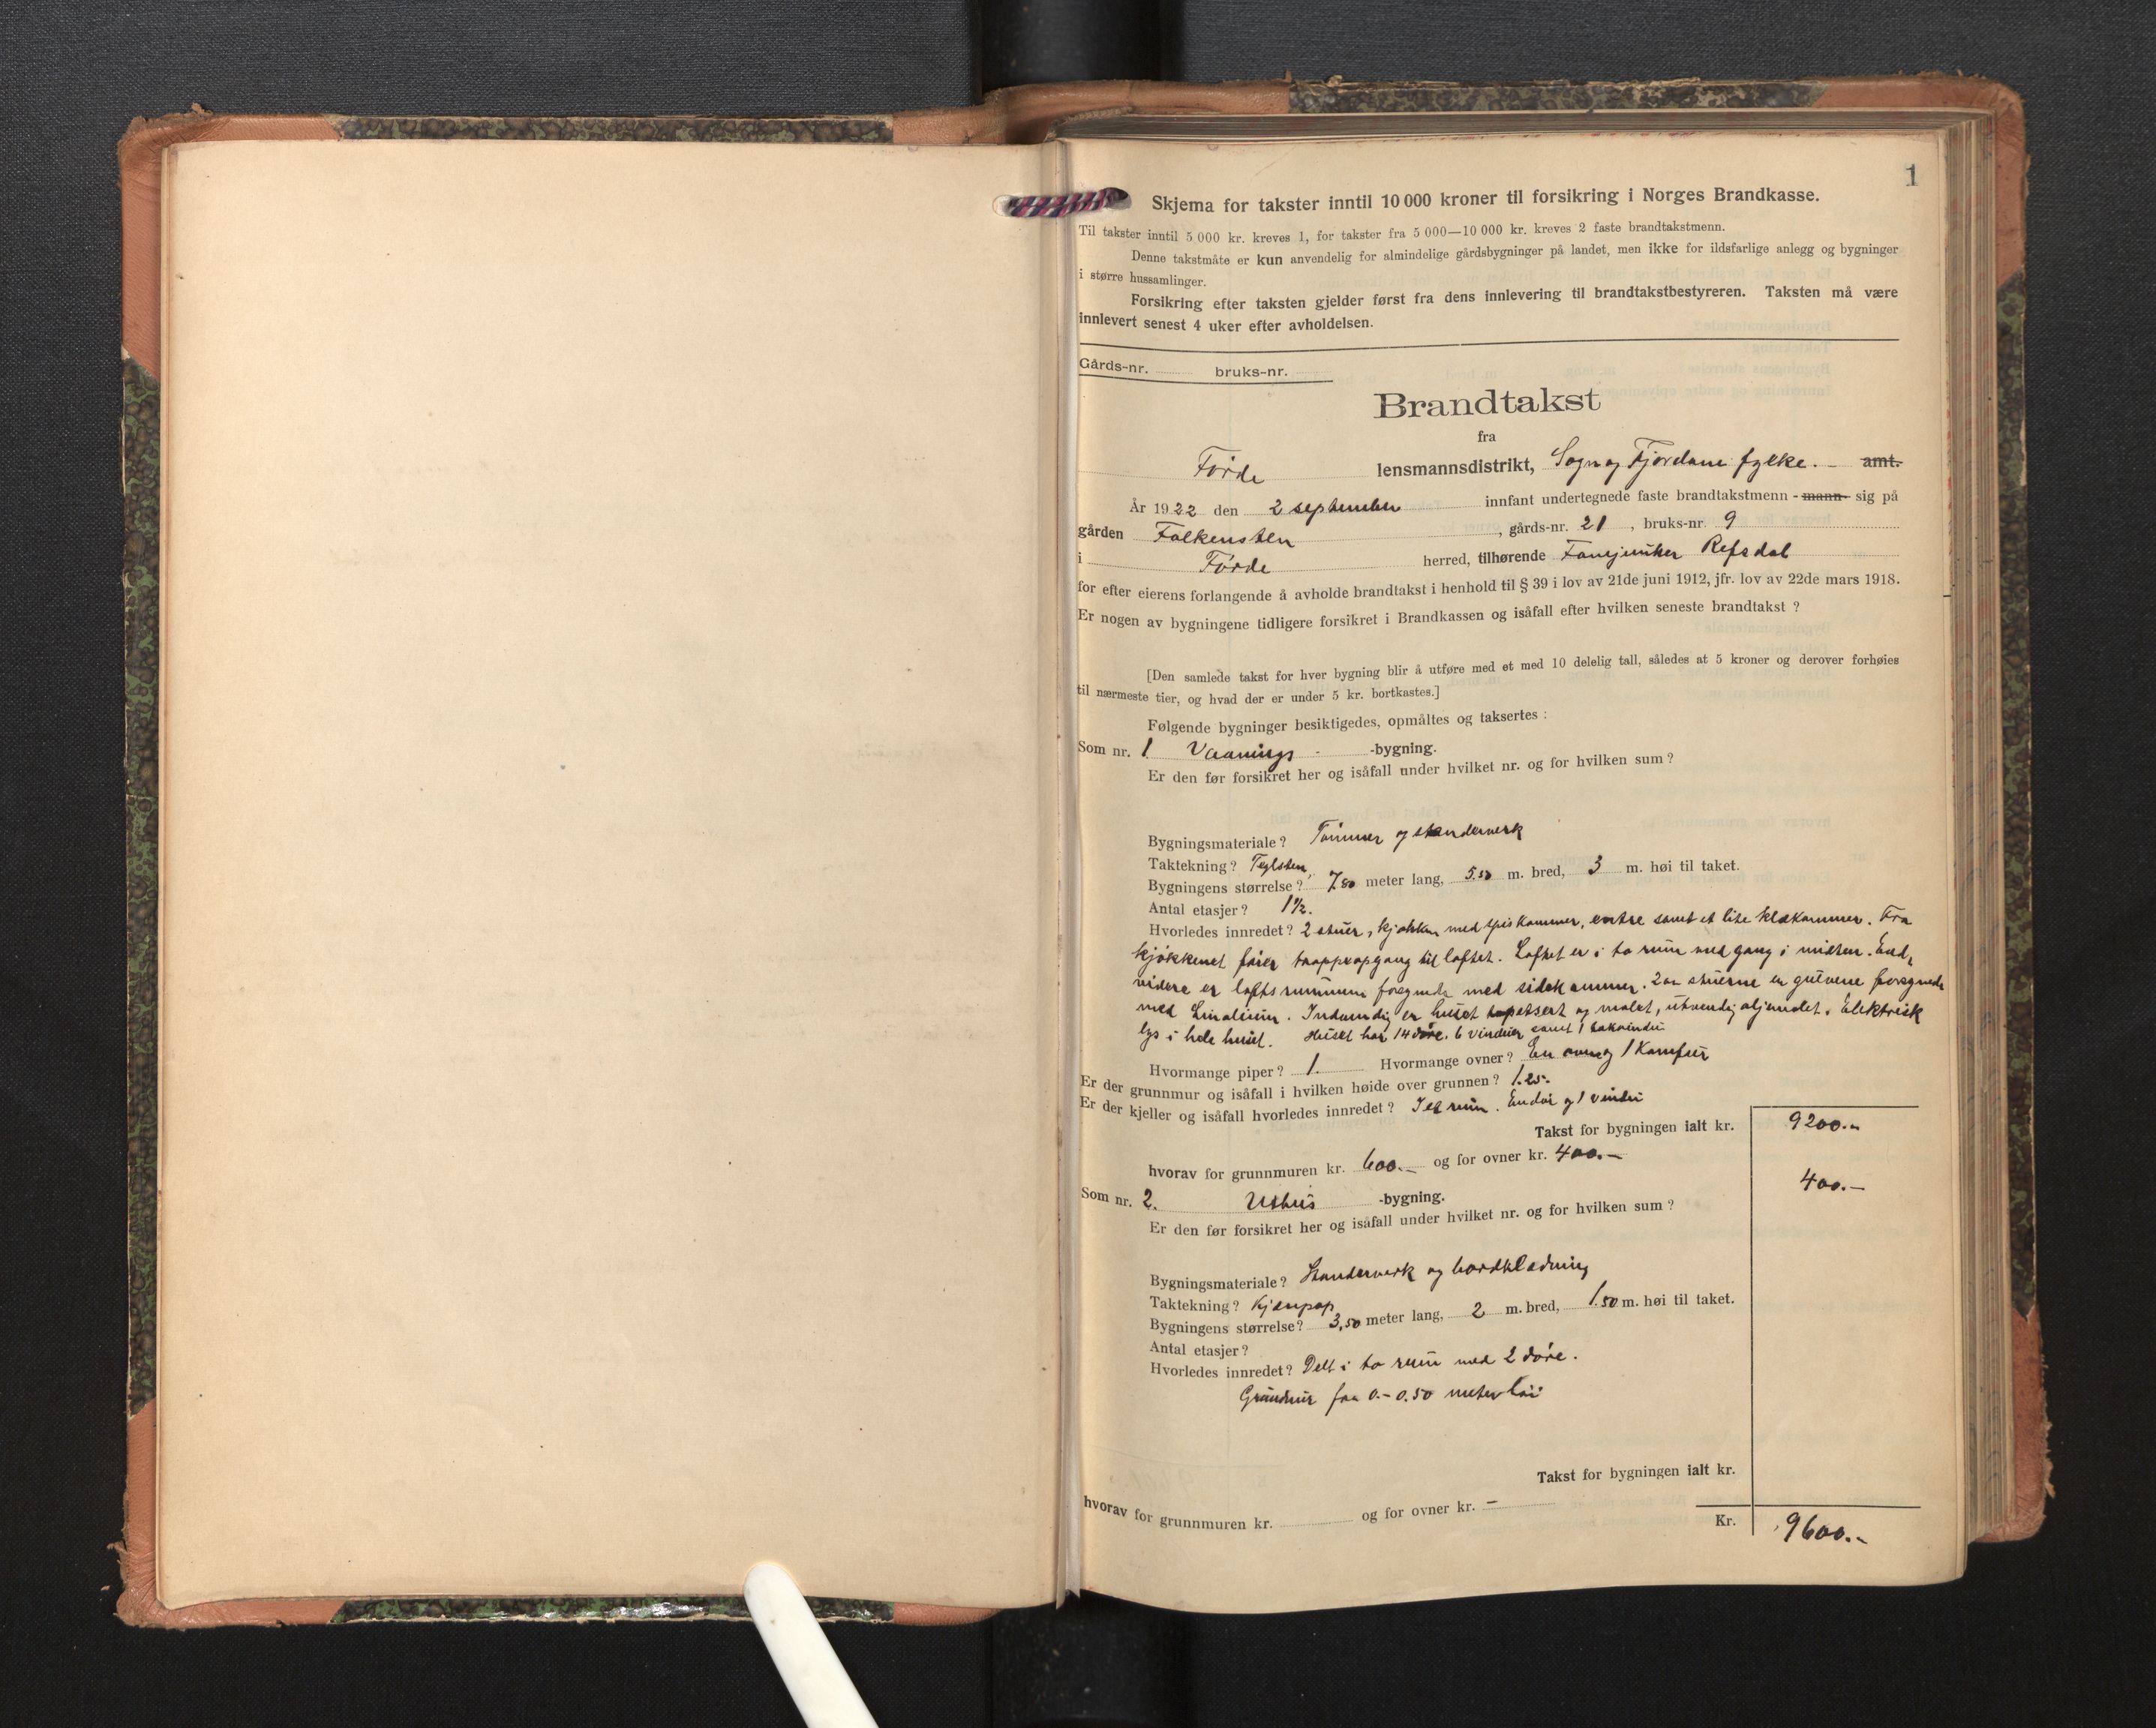 1
Skjema for takster inntil 10 000 kroner til forsikring i Norges Brandkasse.
Til takster inntil 5 000 kr. kreves 1, for takster fra 5 000—10 000 kr. kreves 2 faste brandtakstmenn.
Denne takstmåte er kun anvendelig for almindelige gårdsbygninger på landet, men ikke for ildsfarlige anlegg og bygninger
i større hussamlinger.
Forsikring efter taksten gjelder først fra dens innlevering til brandtakstbestyreren. Taksten må være
innlevert senest 4 uker efter avholdelsen.
Gårds-nr. bruks-nr.
Brandtakst
fra
Førde lensmannsdistrikt, Sogn og Fjordane fylke. - amt.
År 1922 den 2 september innfant undertegnede faste brandtakstmenn - mann- sig på
gården Falkensten, gårds-nr. 21, bruks-nr. 9
i Førde herred, tilhørende Fanejunker Refsdal
for efter eierens forlangende å avholde brandtakst i henhold til § 39 i lov av 21de juni 1912, jfr. lov av 22de mars 1918.
Er nogen av bygningene tidligere forsikret i Brandkassen og isåfall efter hvilken seneste brandtakst ?
[Den samlede takst for hver bygning blir å utføre med et med 10 delelig tall, således at 5 kroner og derover forhøies
til nærmeste tier, og hvad der er under 5 kr. bortkastes.]
Følgende bygninger besiktigedes, opmåltes og taksertes :
Som nr. 1 Vaanings - -bygning.
Er den før forsikret her og isåfall under hvilket nr. og for hvilken sum ?
Bygningsmateriale ? Tømmer og stenderverk
Taktekning ? Teglsten,
Bygningens størrelse ? 7.80 meter lang, 5.50 m. bred, 3 m. høi til taket.
Antal etasjer ? 1½.
Hvorledes innredet ? 2 stuer, kjøkken med spiskammer, entre samt et lite klækammer. Fra
kjøkkenet fører trappeopgang til loftet. Loftet er i to rum med gang i midten. End,
videre er loftsrummene forsynede med sidekammer. I stuerne er gulvene forsynede
med Linolium. Indvendig er huset tapetsert og malet, utvendig oljemalet. Elektrisk
lys i hele huset. Huset har 14 døre, 6 vinduer samt 1 takvindu
Hvormange piper ? 1. Hvormange ovner ? En ovn og 1 Komfur
Er der grunnmur og isåfall i hvilken høide over grunnen ? 1.25-
Er der kjeller og isåfall hvorledes innredet ? I et rum. En dør og 1 vindu
Takst for bygningen ialt kr. 9200.-
hvorav for grunnmuren kr. 600.- og for ovner kr. 400.-
400.-
Som nr. 2. Uthus -bygning.
Er den før forsikret her og isåfall under hvilket nr. og for hvilken sum ?
Bygningsmateriale ? Stenderverk og bordklædning
Taktekning ? Tjærepap
Bygningens størrelse ? 3,50 meter lang, 2 m. bred, 1.50 m. høi til taket.
Antal etasjer ?
Hvorledes innredet ? Delt i to rum med 2 døre.
Grundmur fra 0.-0.50 meter høi
Takst for bygningen ialt kr.
hvorav for grunnmuren kr. og for ovner kr. -
Kr. 9600.-